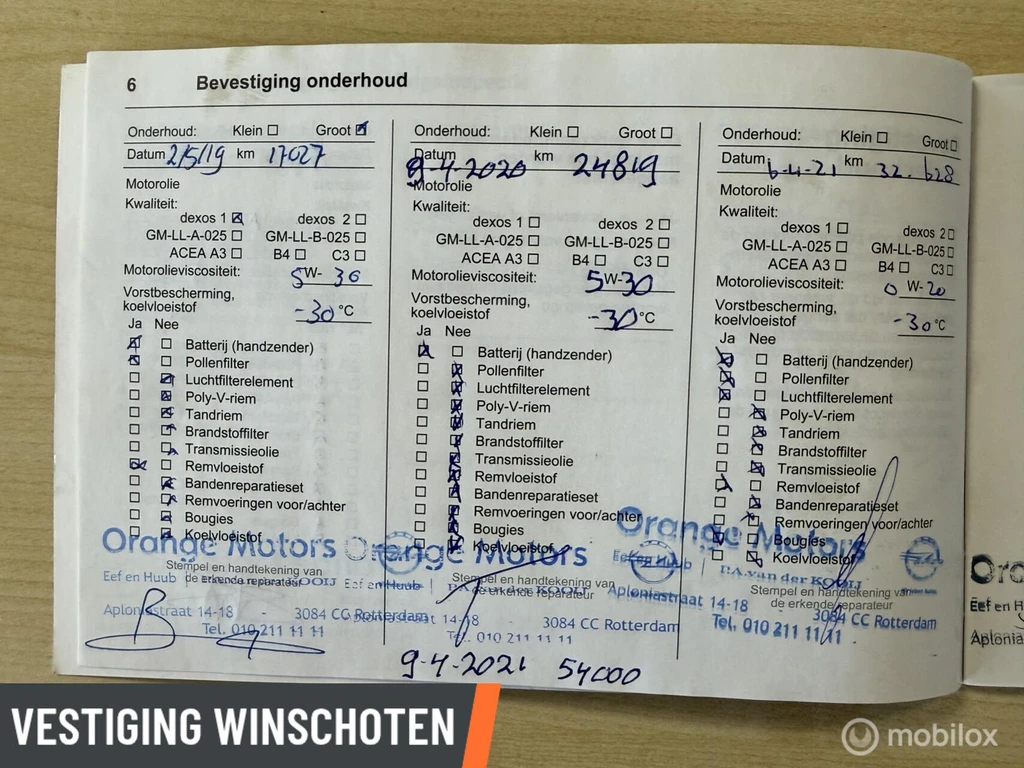 6 Bevestiging onderhoud
Onderhoud: Klein Groot
Datum 2/5/19 km 17027
Motorolie
Kwaliteit:
dexos 1 dexos 2
GM-LL-A-025 GM-LL-B-025
ACEA A3 B4 C3
Motorolieviscositeit: 5W-30
Vorstbescherming,
koelvloeistof -30 °C
Ja Nee
Batterij (handzender)
Pollenfilter
Luchtfilterelement
Poly-V-riem
Tandriem
Brandstoffilter
Transmissieolie
Remvloeistof
Bandenreparatieset
Remvoeringen voor/achter
Bougies
Koelvloeistof
Orange Motors
Stempel en handtekening van
Eef en Huub de erkende reparateur
Aploniastraat 14-18 - 3084 CC Rotterdam
Tel. 010 211 11 11
Onderhoud: Klein Groot
Datum 9-4-2020 km 24819
Motorolie
Kwaliteit:
dexos 1 dexos 2
GM-LL-A-025 GM-LL-B-025
ACEA A3 B4 C3
Motorolieviscositeit: 5W-30
Vorstbescherming,
koelvloeistof -30 °C
Ja Nee
Batterij (handzender)
Pollenfilter
Luchtfilterelement
Poly-V-riem
Tandriem
Brandstoffilter
Transmissieolie
Remvloeistof
Bandenreparatieset
Remvoeringen voor/achter
Bougies
Koelvloeistof
Orange Motors
Stempel en handtekening van
Eef en Huub de erkende reparateur
14-18 - 3084 CC Rotterdam
Tel. 010 211 11 11
9-4-2021 54000
Onderhoud: Klein Groot
Datum 6-4-21 km 32.628
Motorolie
Kwaliteit:
dexos 1 dexos 2
GM-LL-A-025 GM-LL-B-025
ACEA A3 B4 C3
Motorolieviscositeit: 0W-20
Vorstbescherming,
koelvloeistof -30 °C
Ja Nee
Batterij (handzender)
Pollenfilter
Luchtfilterelement
Poly-V-riem
Tandriem
Brandstoffilter
Transmissieolie
Remvloeistof
Bandenreparatieset
Remvoeringen voor/achter
Bougies
Koelvloeistof
Orange Motors
Eef en Huub P.A. van der KOOIJ
Stempel en handtekening van
de erkende reparateur
Aploniastraat 14-18 - 3084 CC Rotterdam
Tel. 010 211 11 11
Ora
Eef en H
Aplonia
VESTIGING WINSCHOTEN
mobilox